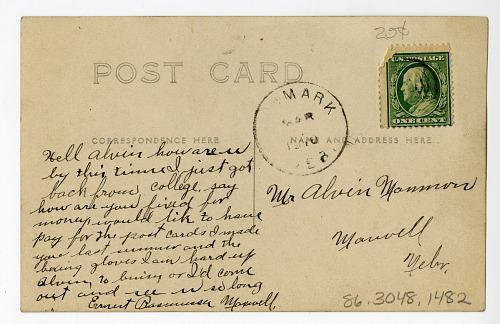 25¢
U.S. POSTAGE
ONE CENT
POST CARD
MARK
MAR
1910
CORRESPONDENCE HERE
NAME AND ADDRESS HERE
Hell Alvin how are u
by this time I just got
back from College, say
how are you fixed for
money would like to have
pay for the post cards I made
you last summer and the
boxing gloves I am hard up
Alvin, to busy or I'd come
out and see u so long
Ernest Rasmussen Maxwell.
Mr Alvin
Maxwell
Nebr.
86.3048.1482